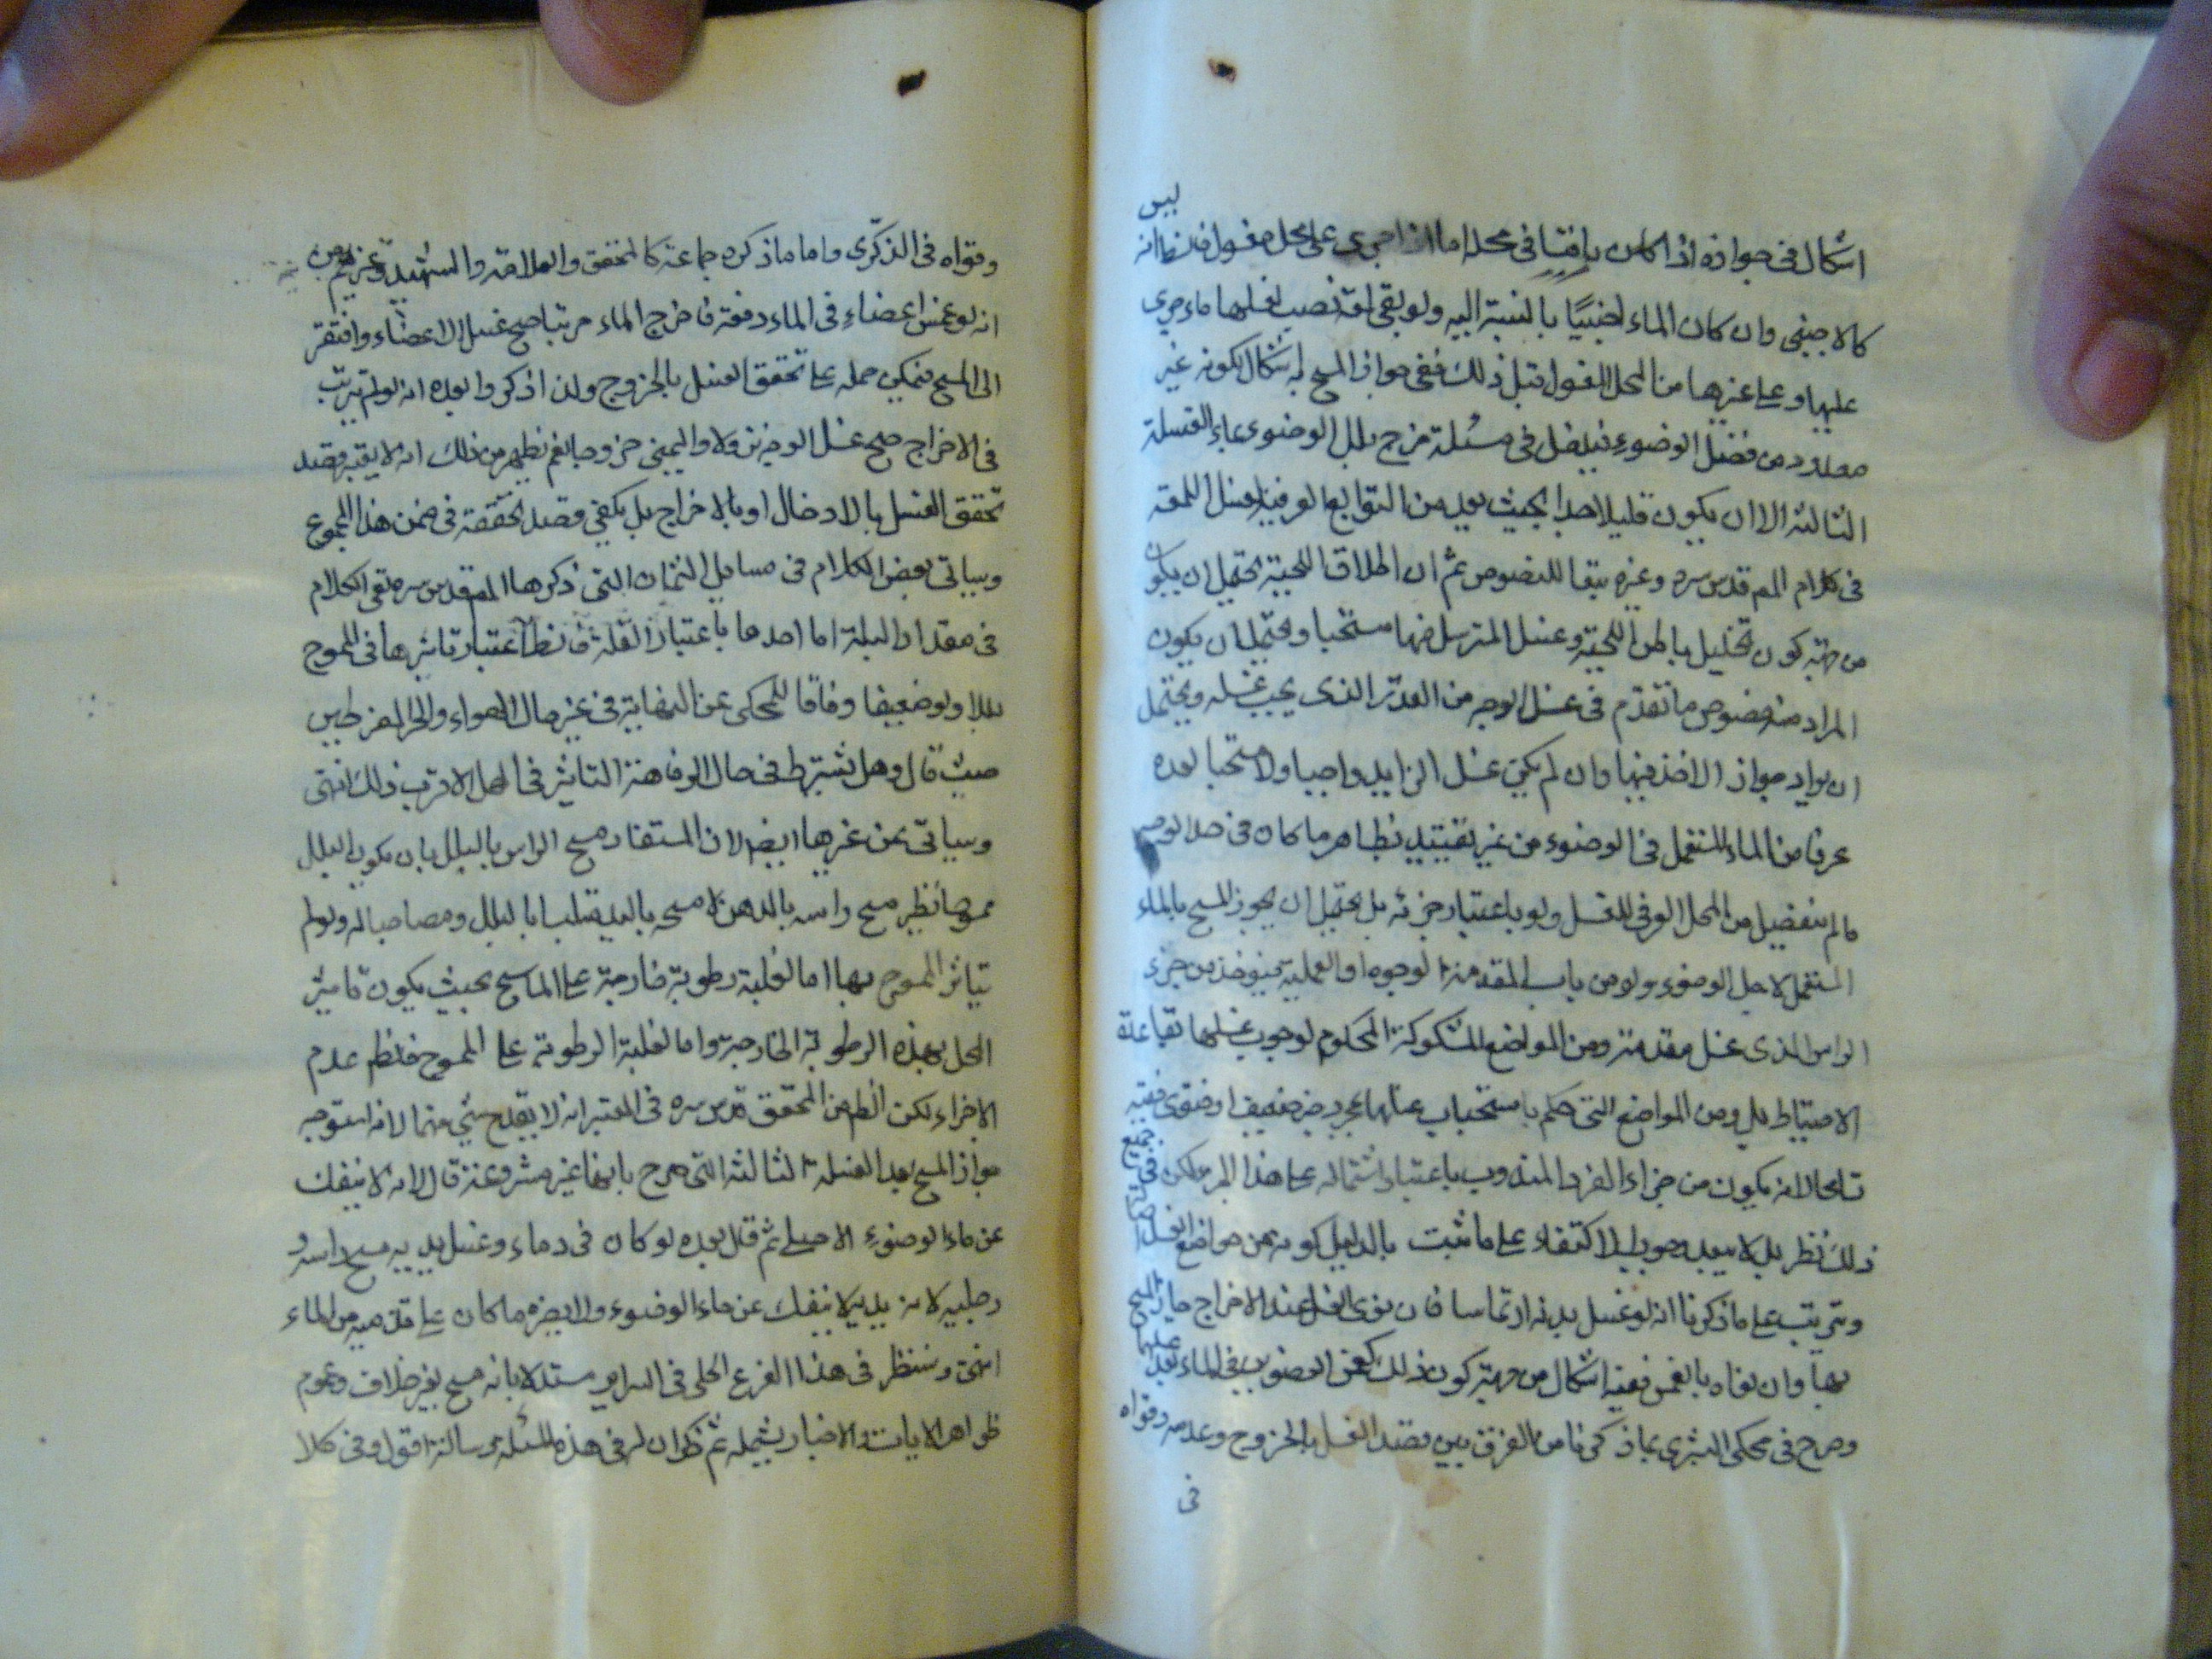 ليس
اشكال فى جوازه اذا كان باقيا فى محله اما اذا جرى على محل مغسول فالظ انه
كالاجنبى وان كان الماء اجنبيًا بالنسبة اليه ولو بقى لمعة فصب لغسلها ماء جرى
عليها وعلى غيرها من المحل المغسول قبل ذلك ففى جواز المسح به اشكال لكونه غير
معدود من فضل الوضوء فيدخل فى مسئلة مزج بلل الوضوء بماء الغسلة
الثالثة الا ان يكون قليلا جدا بحيث يعد من التوابع العرفية لغسل اللمعة
فى كلام المص قدس سره وغيره تبعا للنصوص ثم ان اطلاق اللحية يحتمل ان يكون
من جهة كون تخليل باطن اللحية وغسل المسترسل منها مستحبا ويحتمل ان يكون
المراد منه خصوص ما تقدم فى غسل الوجه من القدر الذى يجب غسله ويحتمل
ان يراد جواز الاخذ منها وان لم يكن غسل الزايد واجبا ولا مستحبا لعده
عرفا من الماء المستعمل فى الوضوء من غير تقييد بظاهر ما كان فى حد الوجه
ما لم ينفصل من المحل العرفى للغسل ولو باعتبار جزئه بل يحتمل ان يجوز المسح بالماء
المستعمل لاجل الوضوء ولو من باب المقدمة الوجودية او العلمية فيؤخذ من جزء
الراس الذى غسل مقدمة ومن المواضع المشكوكة المحكوم لوجوب غسلها بقاعدة
الاحتياط بل ومن المواضع التى حكم باستحباب غسلها بمجرد خبر ضعيف او فتوى فقيه
تسامحا لانه يكون من اجزاء الفرد المندوب باعتبار اشتماله على هذا الجزء لكن فى جميع
ذلك نظر بل لا يبعد وجوب الاكتفاء على ما ثبت بالدليل كونه من مواضع الغسل اصالة
ويترتب على ما ذكرنا انه لو غسل يده ارتماسا فان نوى الغسل عند الاخراج جاز المسح
بها وان نواه بالغمس ففيه اشكال من جهة كون ذلك كغمس العضو فى الماء بعد غسلها
وصرح فى محكى البشرى بما ذكرنا من الفرق بين قصد الغسل بالخروج وعدمه وقواه
فى
وقواه فى الذكرى واما ما ذكره جماعة كالمحقق والعلامة والشهيد وغيرهم من
انه لو غمس اعضاءه فى الماء دفعة فاخرج الماء مرتبا صح غسل الاعضاء وافتقر
الى المسح فيمكن حمله على تحقق الغسل بالخروج ولذا ذكروا بعده انه لو لم يرتب
فى الاخراج صح غسل الوجه نزولا واليمنى خروجا نعم يظهر من ذلك انه لا يعتبر قصد
تحقق الغسل بالادخال او بالاخراج بل يكفى قصد تحققه فى ضمن هذا المجموع
وسياتى بعض الكلام فى مسايل الثمان التى ذكرها المص قدس سره بقى الكلام
فى مقدار البلة اما احدها باعتبار القلة فالظ اعتبار تاثيرها فى الممسوح
بللا ولو ضعيفا وفاقا للمحكى عن النهاية فى غير حال الهواء والحر المفرطين
حيث قال وهل يشترط فى حال الرفاهة التاثير فى المحل الاقرب ذلك انتهى
وسياتى عن غيرها ايضا لان المستفاد مسح الراس بالبلل بان يكون البلل
ممسوحا نظير مسح راسه بالدهن لا مسحه باليد متلبسا بالبلل ومصاحبا له ولو لم
يتاثر الممسوح بها اما لغلبة رطوبة خارجة على الماسح بحيث يكون تاثير
المحل بهذه الرطوبة الخارجة واما لغلبة الرطوبة على الممسوح فالظ عدم
الاجزاء لكن الظ من المحقق قدس سره فى المعتبر انه لا يقدح شئ منهما لانه استوجه
جواز المسح بعد الغسلة الثالثة التى صرح بانها غير مشروعة قال لانه لا ينفك
عن ماء الوضوء الاصلى ثم قال بعده لو كان فى ماء وغسل يديه مسح راسه و
رجليه لان يديه لا ينفك عن ماء الوضوء ولا يضره ما كان على قدميه من الماء
انتهى وسننظر فى هذا الفرع الحلى فى السراير مستدلا بانه مسح بغير خلاف وعموم
ظواهر الايات والاخبار يشمله ثم ذكر ان له فى هذه المسئلة رسالة اقول وفى كلا